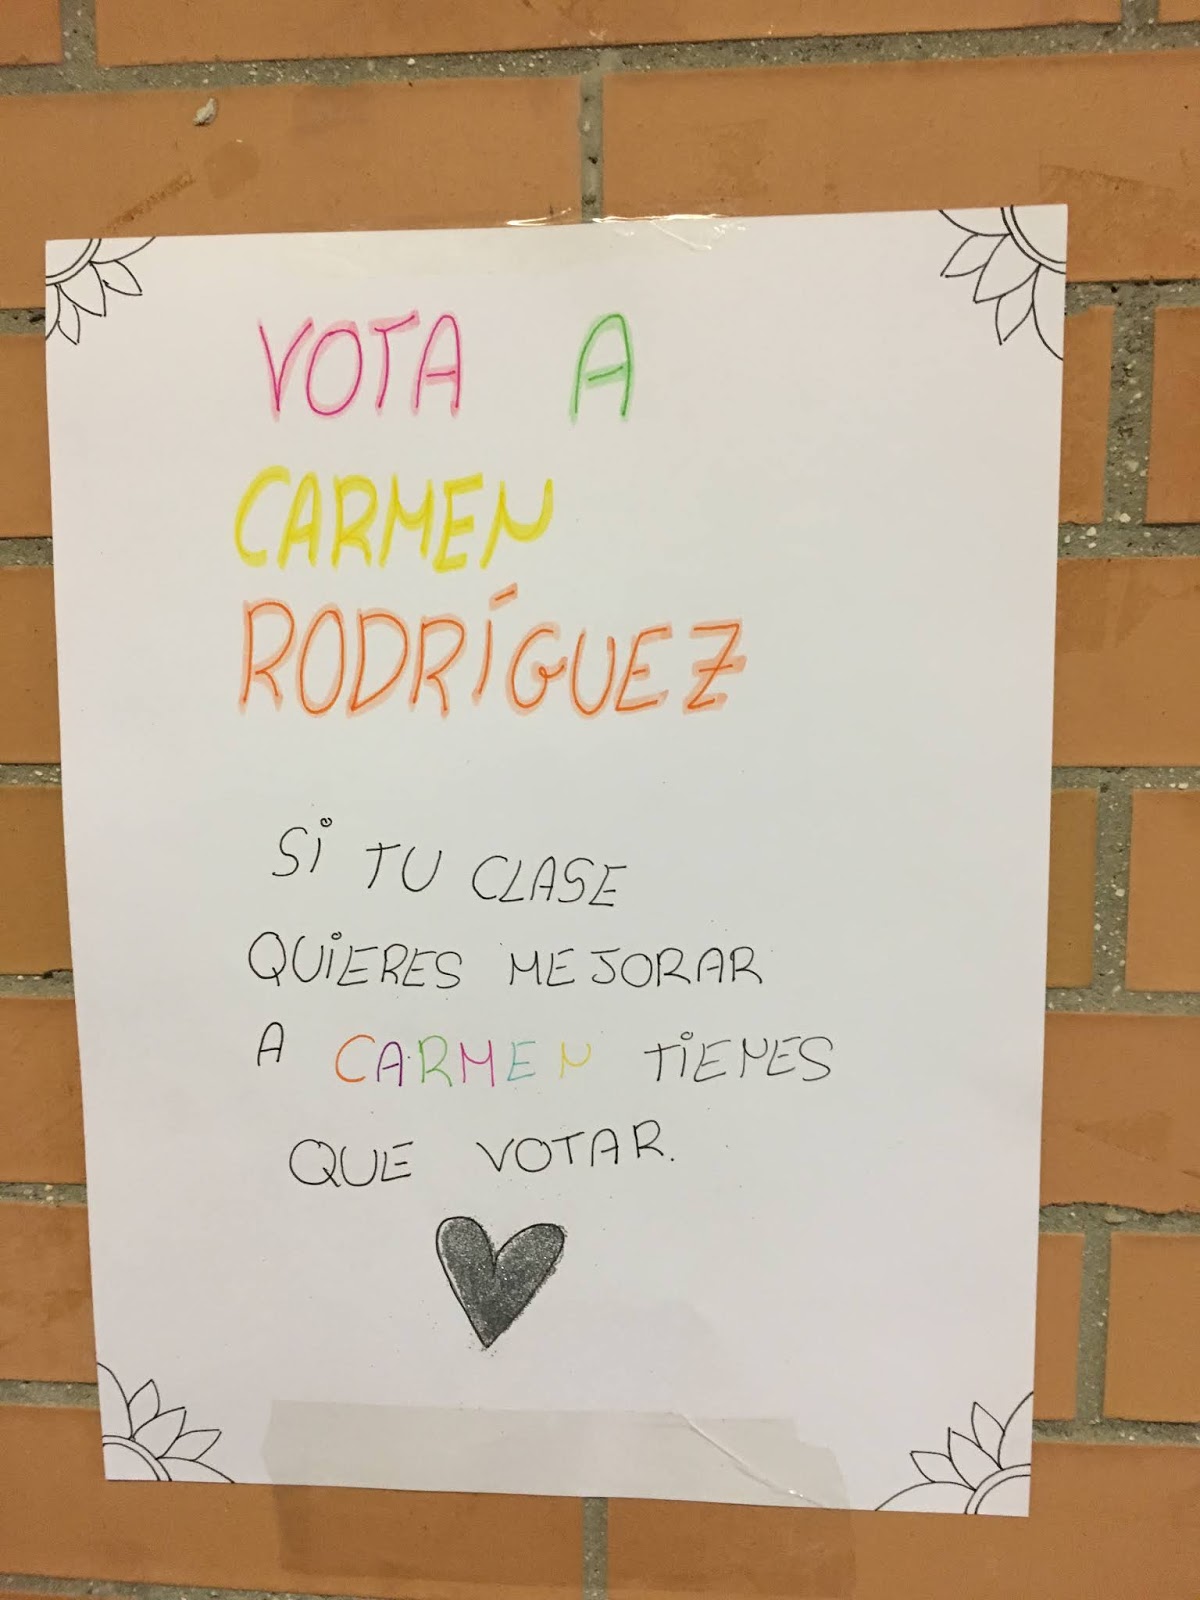 VOTA A
CARMEN
RODRÍGUEZ
Si TU CLASE
QUiERES MEJORAR
A CARMEN TiENES
QUE VOTAR.